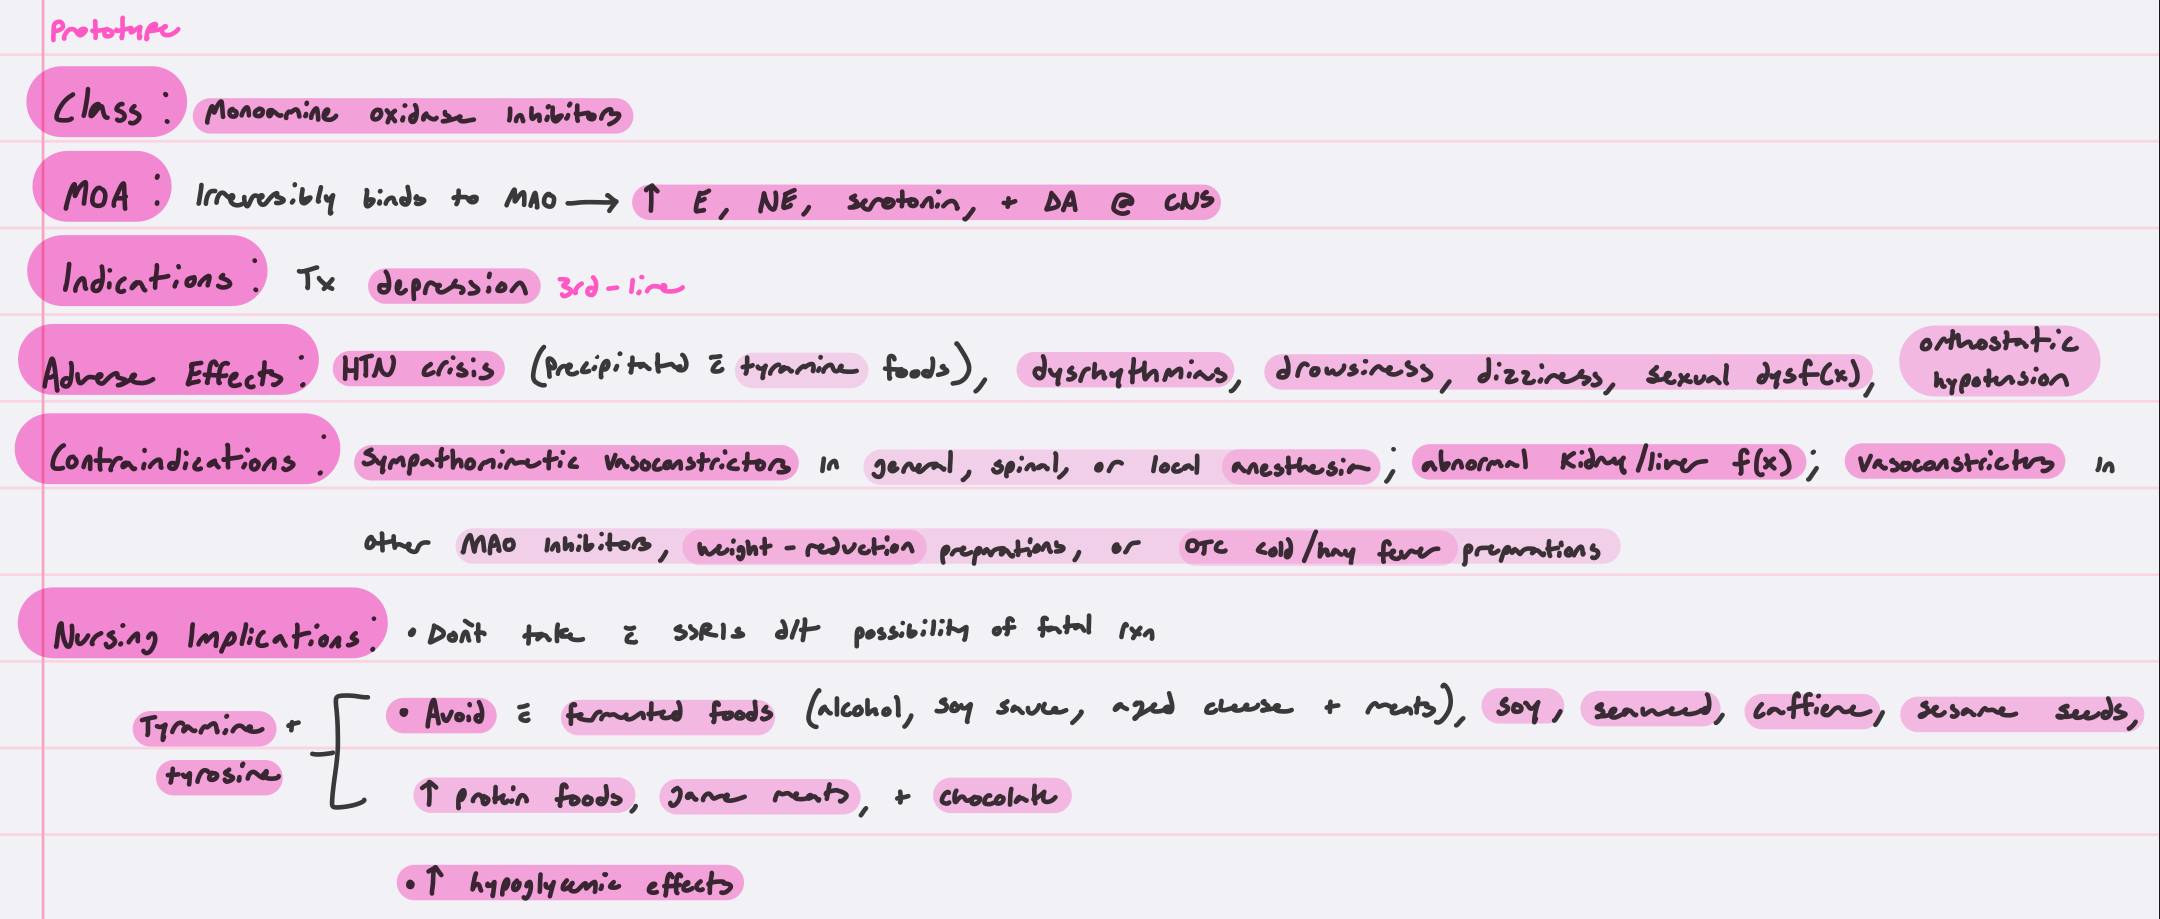 Prototype
Class: Monoamine oxidase Inhibitors
MOA: Irreversibly binds to MAO → ↑ E, NE, serotonin, + DA @ CNS
Indications: Tx depression 3rd-line
Adverse Effects: HTN crisis (precipitated c̄ tyramine foods), dysrhythmias, drowsiness, dizziness, sexual dysf(x), orthostatic hypotension
Contraindications: Sympathomimetic vasoconstrictors in general, spinal, or local anesthesia; abnormal kidney/liver f(x); vasoconstrictors in
other MAO Inhibitors, weight-reduction preparations, or OTC cold/hay fever preparations
Nursing Implications: • Don't take c̄ SSRIs d/t possibility of fatal rxn
Tyramine + tyrosine
• Avoid c̄ fermented foods (alcohol, soy sauce, aged cheese + meats), soy, seaweed, caffiene, sesame seeds,
↑ protein foods, game meats, + chocolate
• ↑ hypoglycemic effects